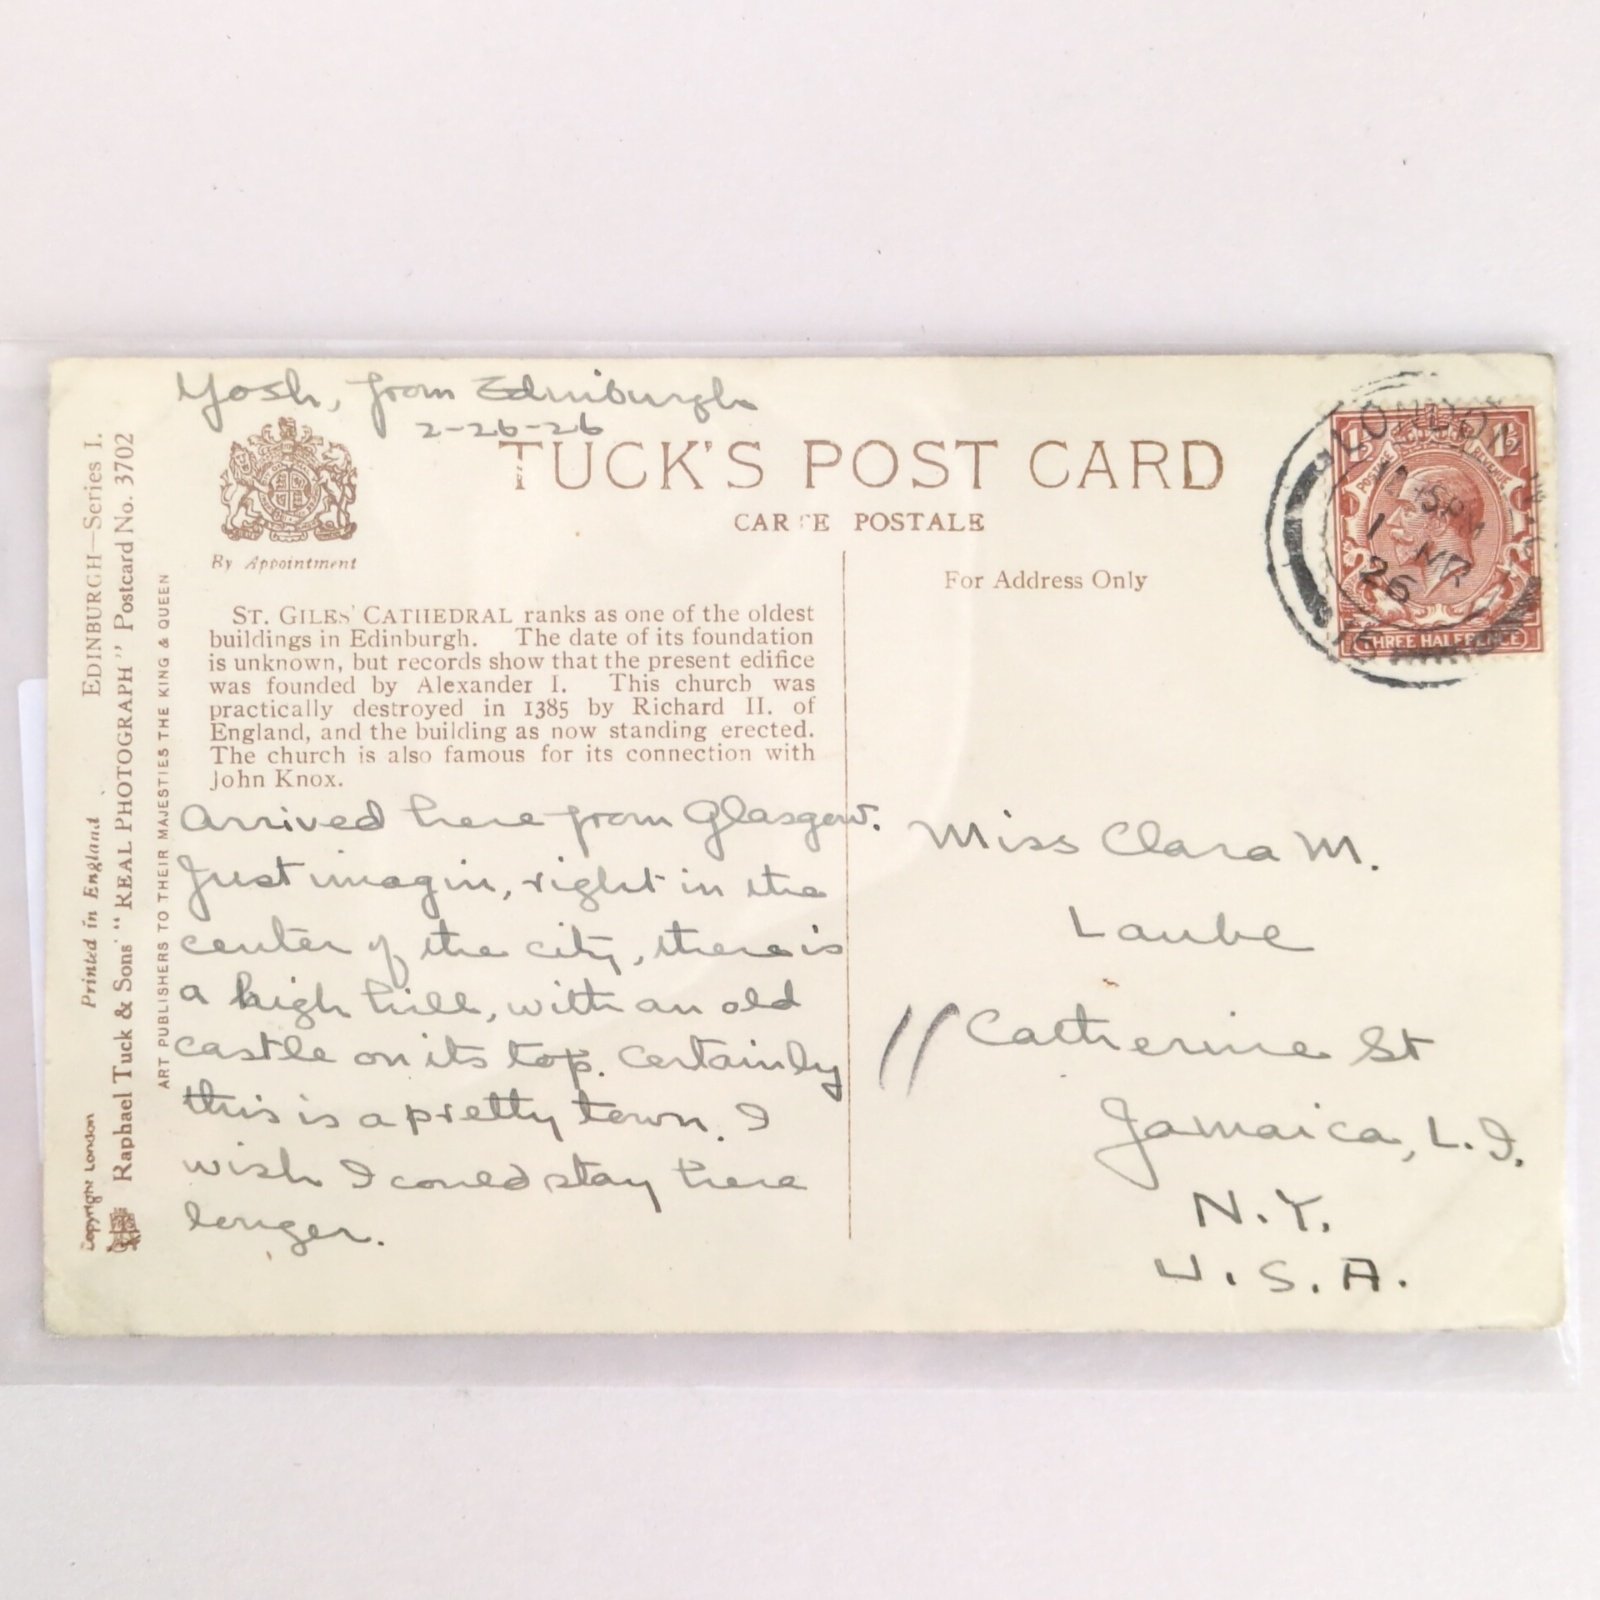 Yosh, from Edinburgh
2-26-26
TUCK'S POST CARD
CARTE POSTALE
By Appointment
For Address Only
ST. GILES' CATHEDRAL ranks as one of the oldest
buildings in Edinburgh. The date of its foundation
is unknown, but records show that the present edifice
was founded by Alexander I. This church was
practically destroyed in 1385 by Richard II. of
England, and the building as now standing erected.
The church is also famous for its connection with
John Knox.
Arrived here from Glasgow.
Just imagin, right in the
center of the city, there is
a high hill, with an old
castle on its top. Certainly
this is a pretty town. I
wish I could stay here
longer.
Miss Clara M.
Laube
11 Catherine St
Jamaica, L.I.
N.Y.
U.S.A.
Copyright London Printed in England EDINBURGH—Series I.
Raphael Tuck & Sons' "REAL PHOTOGRAPH" Postcard No. 3702
ART PUBLISHERS TO THEIR MAJESTIES THE KING & QUEEN
LONDON
1 MR
26
1½ 1½
POSTAGE REVENUE
THREE HALFPENCE